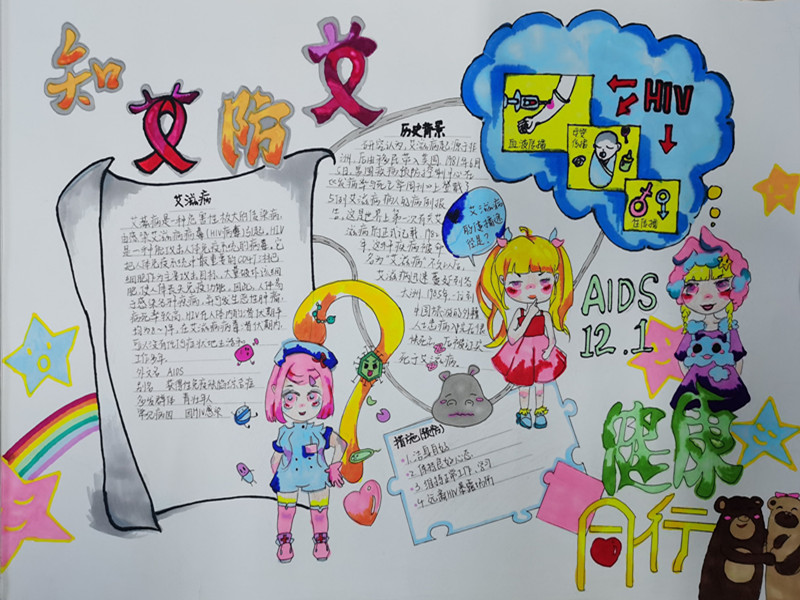 知艾防艾
艾滋病
艾滋病是一种危害性极大的传染病,
由感染艾滋病病毒(HIV病毒)引起,HIV
是一种能攻击人体免疫系统的病毒。它
把人体免疫系统中最重要的CD4T淋巴
细胞作为主要攻击目标,大量破坏该细
胞,使人体丧失免疫功能。因此,人体易
于感染各种疾病,并可发生恶性肿瘤,
病死率较高。HIV在人体内的潜伏期平
均为8~9年,在艾滋病病毒潜伏期内,
可以没有任何症状地生活和
工作多年
外文名 AIDS
获得性免疫缺陷综合症
多发群体 青壮年人
常见病因 因HIV感染
历史背景
研究认为,艾滋病起源于非
洲,后由移民带入美国。1981年6月
5日,美国疾病预防控制中心在
《发病率与死亡率周刊》上登载了
5例艾滋病病人的病例报
告,这是世界上第一次有关艾
滋病的正式记载。
名为"艾滋病"不久以后,
艾滋病迅速蔓延到各
大洲。1985年,一位到
中国旅游的外籍
死于艾滋病。
艾滋病
的传播途
径是?
HIV
血液传播
母婴
传播
性传播
AIDS
12.1
措施(预防)
1.洁身自好
2.保持良好心态
3.维持正常工作、学习
4.远离HIV
健康
同行